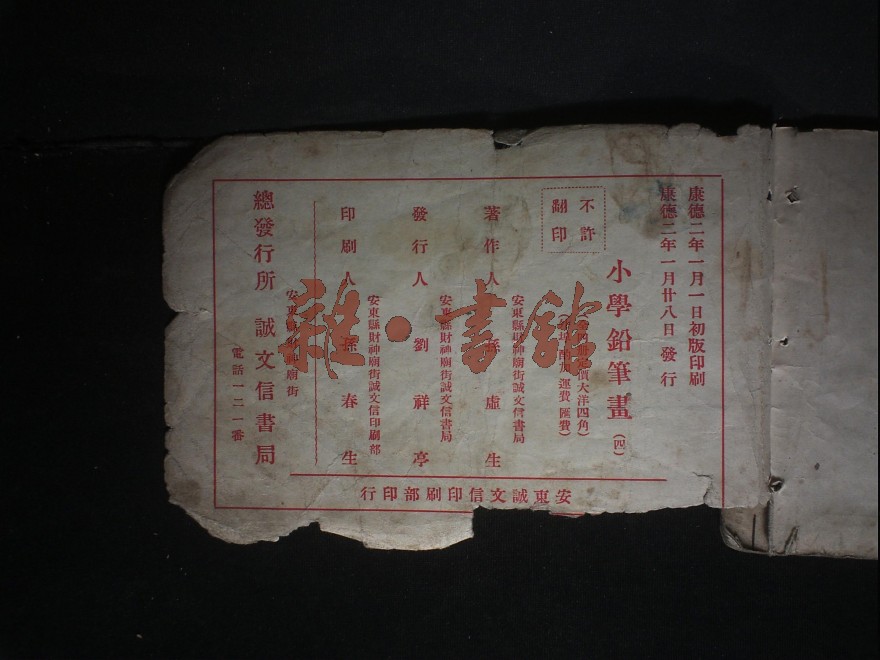 康德二年一月一日初版印刷
康德二年一月廿八日發行
小學鉛筆畫（四）
價大洋四角）
加運費匯費）
不許
翻印
著作人孫虛生
安東縣財神廟街誠文信書局
發行人劉祥亭
安東縣財神廟街誠文信書局
印刷人孫春生
安東縣財神廟街誠文信印刷部
安東縣財神廟街
總發行所誠文信書局
電話一二一番
安東誠文信印刷部印行
雜·書館